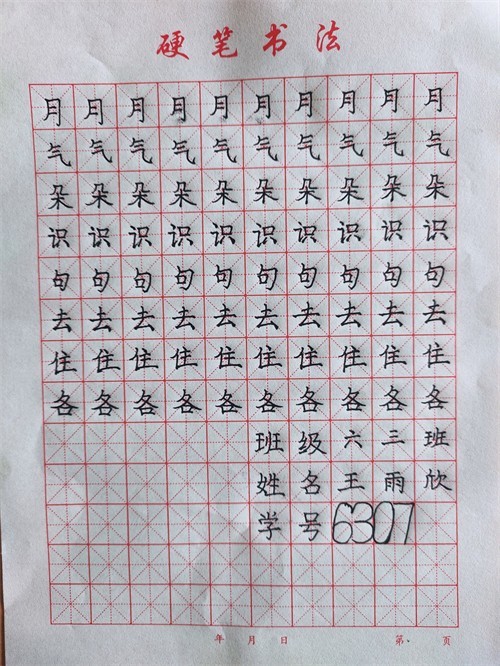 硬笔书法
月月月月月月月月月月
气气气气气气气气气气
朵朵朵朵朵朵朵朵朵朵
识识识识识识识识识识
句句句句句句句句句句
去去去去去去去去去去
住住住住住住住住住住
各各各各各各各各各各
班级六三班
姓名王雨欣
学号6307
年 月 日 第、 页